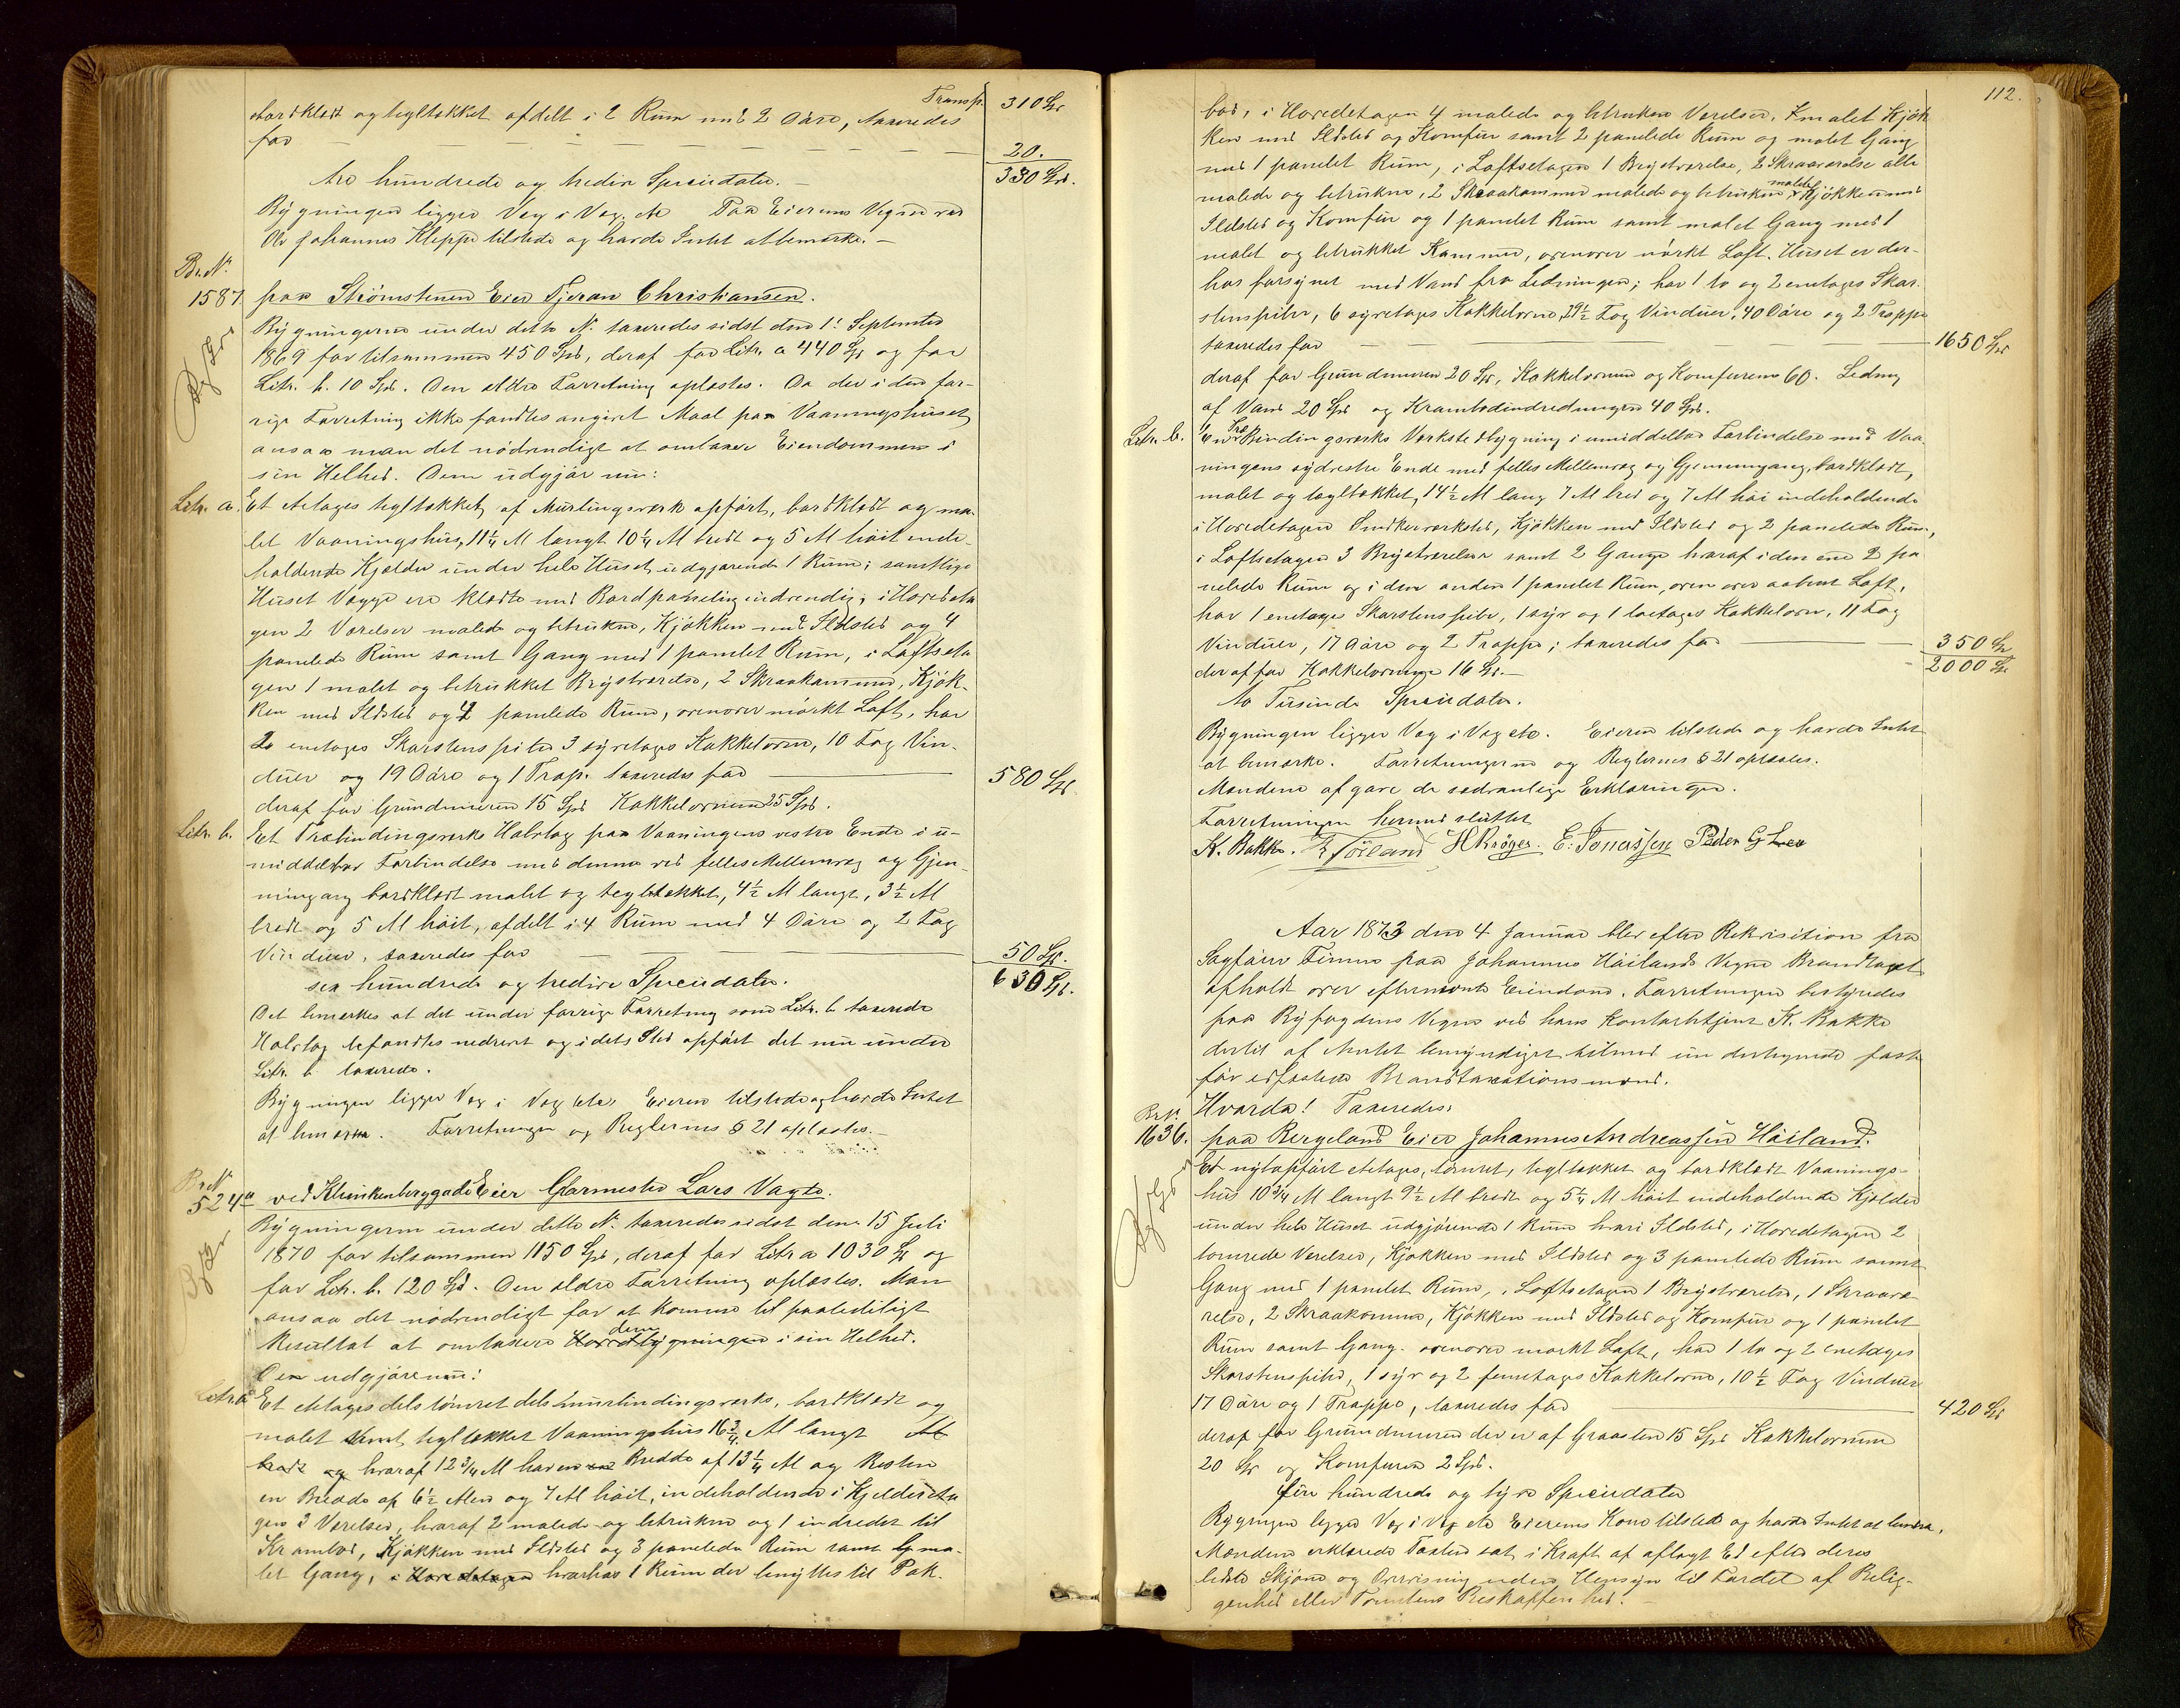 Transp. 310 Spd
bordklædt og tegltækket afdelt i 2 Rum med 2 Döre, taxeredes
for 20.
330 Spd.
tre hundrede og tredive Speciedaler.
Bygningen ligger Væg i Væg etc Paa Eierens Vegne var
Ole Johannes Kleppe tilstede og havde Intet at bemærke. –
Br. №
1587 paa Strömstenen Eier Tjeran Christiansen.
Bygningerne under dette №. taxeredes sidst den 1ˢ September
1869 for tilsammen 450 Spd, deraf for Litr. a 440 Spd og for
Litr. b. 10 Spd. Den ældre Forretning oplæstes. Da der i den for-
rige Forretning ikke fandtes angivet Maal paa Vaaningshuset
ansaa man det nödvendigt at omtaxere Eiendommen i
sin Helhed. Den udgjör nu:
Litr. a. Et etetages tegltækket, af Murbindingsverk opfört, bordklædt og ma-
let Vaaningshus, 11¼ Al langt 10¼ Al bredt og 5 Al höit inde-
holdende Kjælder under hele Huset udgjörende 1 Rum; samtlige
Huset Vægge ere klædte med Bordpaneling indvendig; i Hovedeta
gen 2 Værelser malede og betrukne, Kjökken med Ildsted og 4
panelede Rum samt Gang med 1 panelet Rum, i Loftseta
gen 1 malet og betrukket Brystværelse, 2 Skraakammere, Kjök-
ken med Ildsted og 4 panelede Rum, ovenover mörkt Loft, har
2 enetages Skorstenspiber 3 syretages Kakkelovne, 10 Fag Vin-
duer og 19 Döre og 1 Trap. taxeredes for 580 Spd
deraf for Grundmuren 15 Spd Kakkelovnene 25 Spd.
Litr. b. Et Træbindingsverks Halvtag paa Vaaningens vestre Ende i u-
middelbar Forbindelse med denne ved fælles Mellemvæg og Gjen-
nemgang bordklædt malet og tegltækket, 4½ Al langt, 3½ Al
bredt og 5 Al höit, afdelt i 4 Rum med 4 Döre og 2 Fag
Vinduer, taxeredes for 50 Spd.
630 Spd.
sex hundrede og tredive Speciedaler.
Det bemærkes at det under forrige Forretning som Litr. b taxerede
Halvtag befandtes nedrevet og i dets Sted opfört det nu under
Litr. b. taxerede.
Bygningen ligger Væg i Væg etc. Eieren tilstede og havde Intet
at bemærke. Forretningen og Reglernes § 21 oplæstes. –
Br. №
524a ved Klinkenberggade Eier Glarmester Lars Vagte.
Bygningerne under dette №. taxeredes sidst den 15 Juli
1870 for tilsammen 1150 Spd, deraf for Litr a 1030 Spd og
for Litr. b. 120 Spd. Den ældre Forretning oplæstes. Man
ansaa det nödvendigt for at komme til paalideligt
Resultat at omtaxere dem i sin Helhed.
Den udgjörer nu:
Litr. a Et etetages dels tömret dels muurbindingsverks, bordklædt og
malet samt tegltækket Vaaningshus 16¾ Al langt
hvoraf 12¾ Al haven Bredde af 13¼ Al og Resten
en Bredde af 6½ Alen og 7 Al höit, indeholdende i Kjeldereta
gen 3 Værelser, hvoraf 2 malede og betrukne og 1 indredet til
Krambod, Kjökken med Ildsted og 3 panelede Rum samt ma-
let Gang, hvorhos 1 Rum der benyttes til Pak-
112.
bod, i Hovedetagen 4 malede og betrukne Værelser, 1 malet Kjök
ken med Ildsted og Komfur samt 2 panelede Rum og malet Gang
med 1 panelet Rum, i Loftsetagen 1 Brystværelse, 2 Skraaværelse alle
malede og betrukne, 2 Skraakammer malede og betrukne malet Kjökken med
Ildsted og Komfur og 1 panelet Rum samt malet Gang med 1
malet og betrukket Kammer, ovenover mörkt Loft. Huset er der-
hos forsynet med Vand fra Ledningen; har 1 to og 2 enetages Skor-
stenspiber, 6 syretages Kakkelovne, 29½ Fag Vinduer, 40 Döre og 2 Trapper
taxeredes for 1650 Spd
deraf for Grundmuren 20 Spd, Kakkelovnene og Komfurene 60. Ledning
af Vand 20 Spd og Krambodindredningen 40 Spd.
Litr. b. En Træbindingsverks Værkstedbygning i umiddelbar Forbindelse med Vaa-
ningens sydvestre Ende med fælles Mellemvæg og Gjennemgang, bordklædt,
malet og tegltækket, 14½ Al lang 7 Al bred og 7 Al höi indeholdende
i Hovedetagen Snedkerværksted, Kjökken med Ildsted og 2 panelede Rum,
i Loftsetagen 3 Brystværelser samt 2 Gange hvoraf i den ene 2 pa
nelede Rum og i den anden 1 panelet Rum, oven over aabent Loft,
har 1 enetages Skorstenspibe, 1 syv og 1 toetages Kakkelovn, 11 Fag
Vinduer, 17 Döre og 2 Trapper; taxeredes for 350 Spd
2000 Spd
deraf for Kakkelovnene 16 Spd. –
to Tusinde Speciedaler.
Bygningen ligger Væg i Væg etc. Eieren tilstede og havde Intet
at bemærke. Forretningerne og Reglernes § 21 oplæstes.
Mændene afgave de sædvanlige Erklæringer.
Forretningen hermed sluttet
K. Bakke. Törland H Kröger. E. Jonassen Peder G
Aar 1873 den 4 Januar blev efter Rekvisition fra
Sagförer Finne paa Johannes Höilands Vegne Brandtaxt
afholdt over eftermeldte Eiendom. Forretningen bestyredes
paa Byfogdens Vegne ved hans Kontorbetjent K. Bakke
dertil af Amtet bemyndiget tilmed un derhegnede fast
för edfæstede Brandtaxationsmænd.
Hvorda! Taxeredes:
Br. №.
1636. paa Bergeland Eier Johannes Andreassen Höiland.
Et nyt opfört etetages, tömret, tegltækket og bordklædt Vaanings-
hus 10¾ Al langt 9½ Al bredt og 5¼ Al höit indeholdende Kjelder
under hele Huset udgjörende 1 Rum hvori Ildsted, i Hovedetagen 2
tömrede Værelser, Kjökken med Ildsted og 3 panelede Rum samt
Gang med 1 panelet Rum, i Loftsetagen 1 Brystværelse, 1 Skraavæ
relse, 2 Skraakammer, Kjökken med Ildsted og Komfur og 1 panelet
Rum samt Gang. ovenover mörkt Loft, har 1 to og 2 enetages
Skorstenspiber, 1 syv og 2 femetages Kakkelovne, 10½ Fag Vinduer
17 Döre og 1 Trappe, taxeredes for 420 Spd
deraf for Grundmuren der er af Graasten 15 Spd Kakkelovnene
20 Spd og Komfuren 2 Spd.
fire hundrede og tyve Speciedaler
Bygningen ligger Væg i Væg etc Eierens Kone tilstede og havde Intet at bemærke.
Mændene erklærede Taxten sat i Kraft af aflagt Ed efter deres
bedste Skjön og Overvisning uden Hensyn til Fordel af Belig-
genhed eller Tomtens Beskaffenhed. –